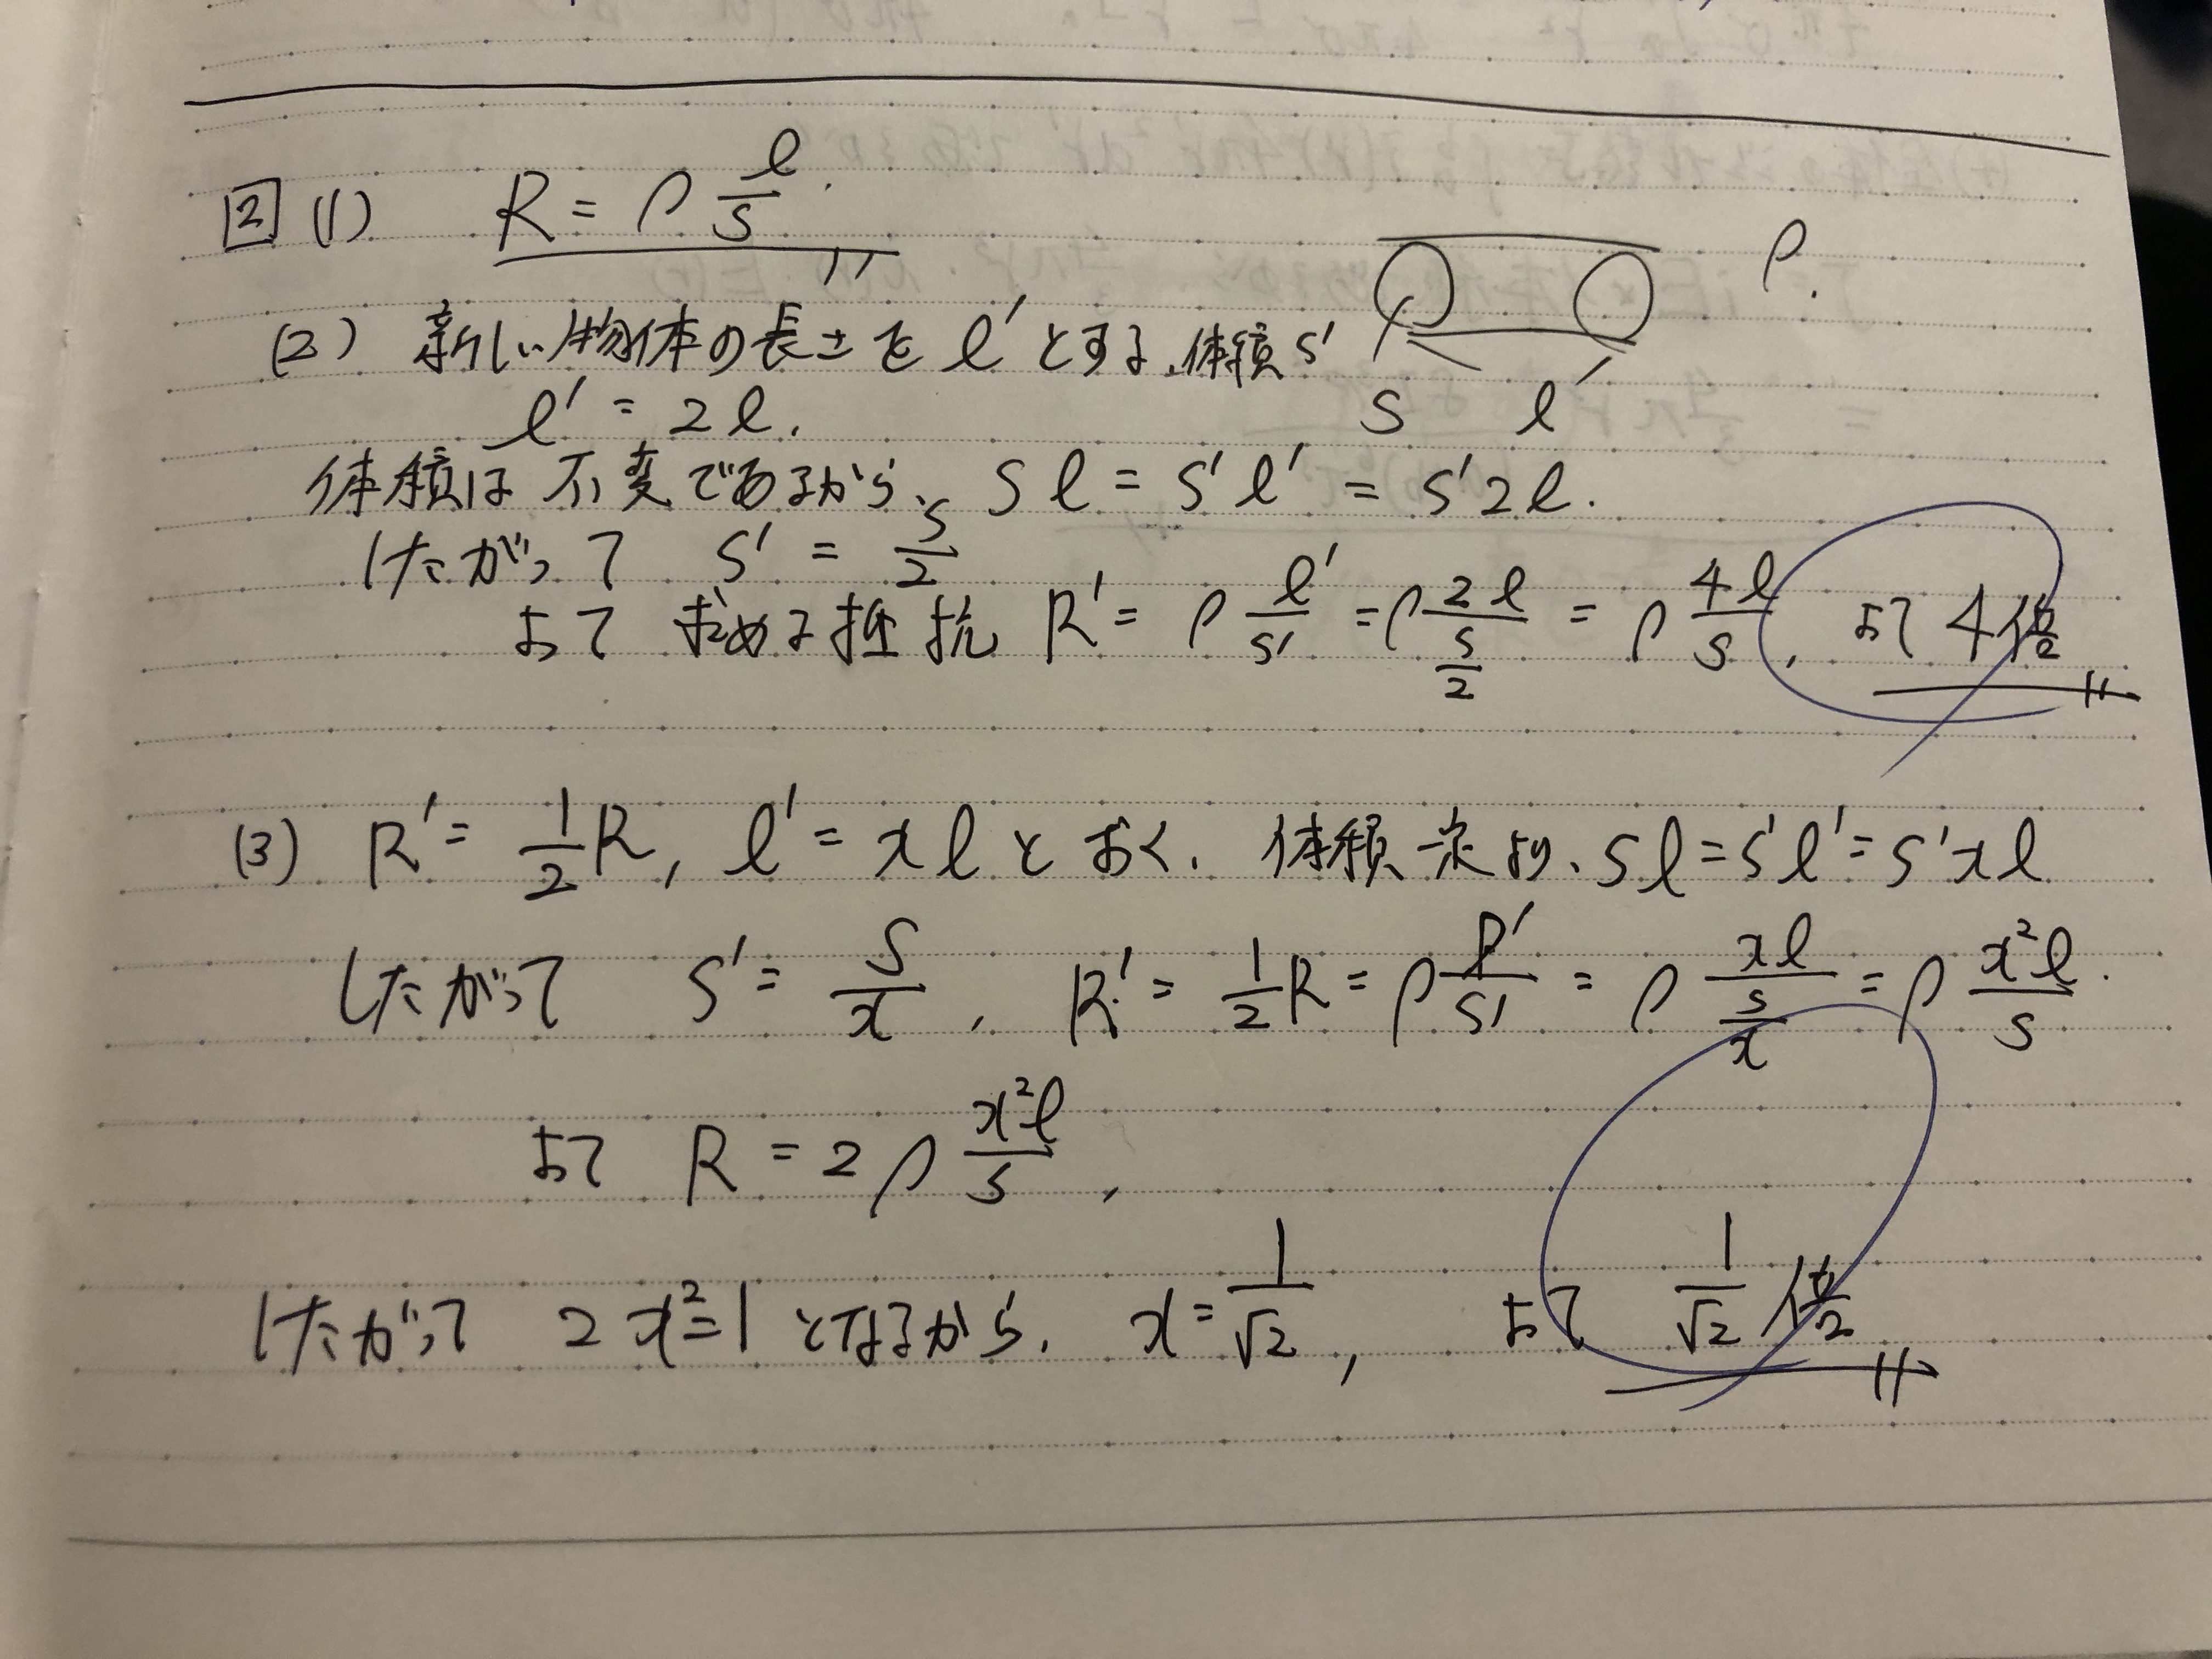 [2] (1) R = ρ l/S.
ρ.
(2) 新しい物体の長さを l' とする、体積 S'
S l'
l' = 2l.
体積は不変であるから、 Sl = S'l' = S'2l.
したがって S' = S/2
よって 求める抵抗 R' = ρ l'/S' = ρ 2l/(S/2) = ρ 4l/S, よって 4倍
(3) R' = 1/2 R, l' = xl とおく. 体積一定より、Sl = S'l' = S'xl
したがって S' = S/x, R' = 1/2 R = ρ l'/S' = ρ xl/(S/x) = ρ x²l/S.
よって R = 2ρ x²l/S,
したがって 2x²=1 となるから、 x = 1/√2, よって 1/√2 倍